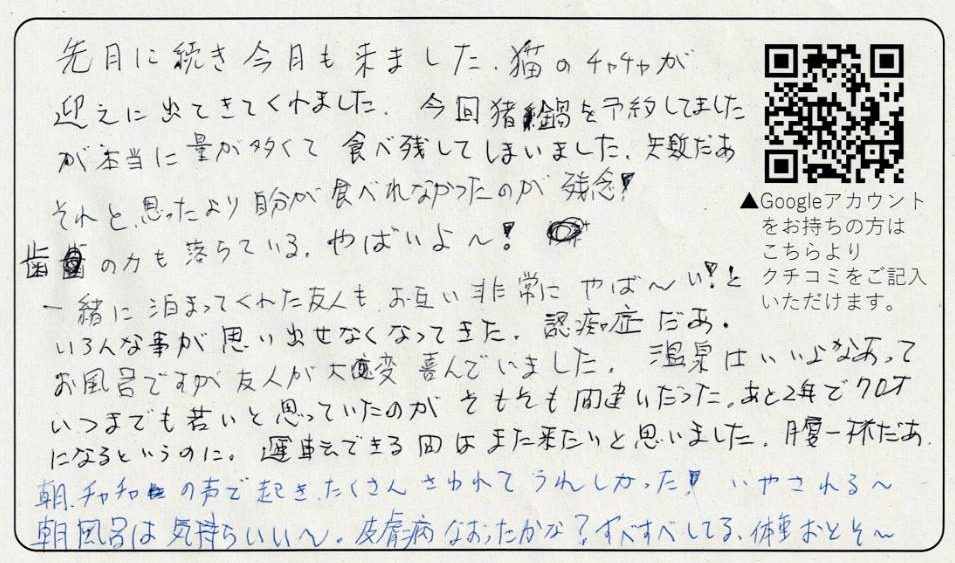 先月に続き今月も来ました、猫のチャチャが
迎えに出てきてくれました。今回猪鍋を予約してました
が本当に量が多くて食べ残してしまいました、失敗だあ
それと思ったより自分が食べれなかったのが残念!
歯の力も落ちている。やばいよ〜!
一緒に泊まってくれた友人も、お互い非常にやば〜い!と
いろんな事が思い出せなくなってきた。認痴症だあ。
お風呂ですが友人が大変喜んでいました。温泉はいいよなあって
いつまでも若いと思っていたのがそもそも間違いだった。あと2年で
になるというのに。運転できる間はまた来たいと思いました。腹一杯だあ
朝、チャチャの声で起き、たくさんさわれてうれしかった!いやされる〜
朝風呂は気持ちいい〜。皮膚病なおったかな?すべすべしてる、体重おとそ〜
▲Googleアカウント
をお持ちの方は
こちらより
クチコミをご記入
いただけます。